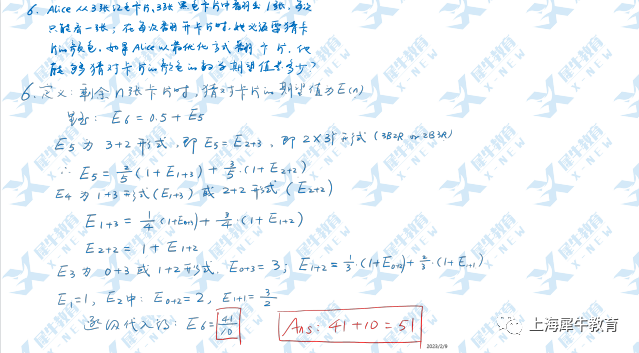 6. Alice 从3张红色卡片、3张黑色卡片中翻出1张, 每次
只能看一张; 在每次翻开卡片时, 她必须要猜卡
片的颜色. 如果Alice以最优化方式翻卡片. 他
能够猜对卡片的颜色的数学期望值是多少?
6. 定义: 剩余n张卡片时, 猜对卡片的期望值为E(n)
显然: E₆ = 0.5 + E₅
E₅ 为 3+2 形式, 即 E₅ = E₂₊₃, 即 2×3形式 (3B2R or 2B3R)
∴ E₅ = 2/5 (1+E₁₊₃) + 3/5 · (1+E₂₊₂)
E₄ 为 1+3形式(E₁₊₃) 或 2+2 形式 (E₂₊₂)
E₁₊₃ = 1/4 · (1+E₀₊₃) + 3/4 · (1+E₁₊₂)
E₂₊₂ = 1 + E₁₊₂
E₃ 为 0+3 或 1+2形式. E₀₊₃ = 3; E₁₊₂ = 1/3 · (1+E₀₊₂) + 2/3 · (1+E₁₊₁)
E₁=1, E₂中: E₀₊₂ = 2, E₁₊₁ = 3/2
逐切代入得: E₆ = 41/10
Ans: 41+10 = 51
2023/2/9
上海犀牛教育
犀牛教育
X-NEW